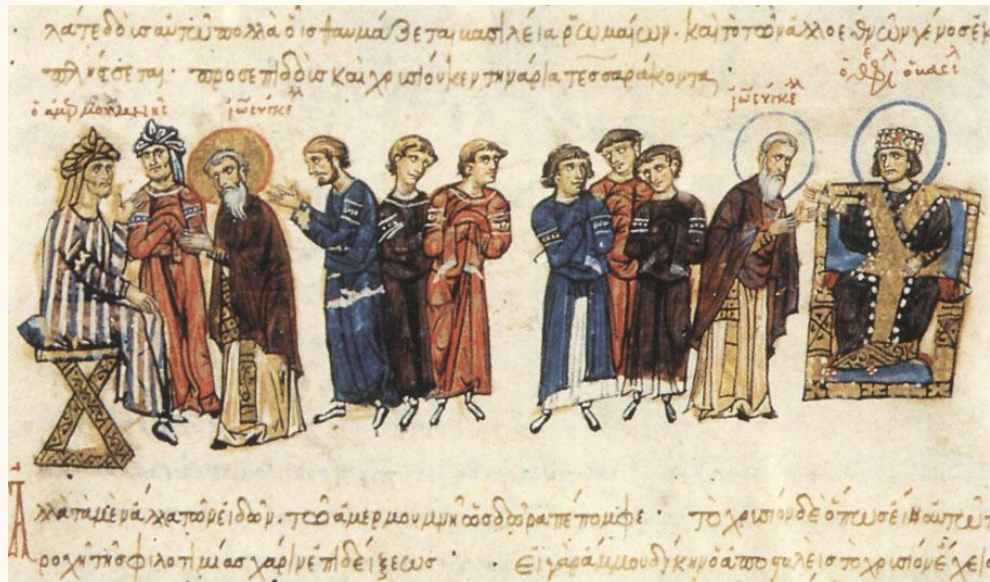 λά τε δοὺς αὐτῶ πολλὰ οἷς θαυμάζεται βασιλεία ῥωμαίων· καὶ τὸ τῶν ἀλλοεθνῶν γένος ἐκ
πλήξεται· προσεπιδοὺς καὶ χρυσίου κεντηνάρια τεσσαράκοντα
ὁ ἀμερμουμνῆς
ἰῶ σύγκελλ
ἰῶ σύγκελλ
ὁ θεόφιλ ὁ βασιλ
Ἀλλὰ τὰ μὲν ἄλλα τῶν εἰδῶν· τῶ ἀμερμουμνῆ ὡς δῶρα πέπομφε· τὸ χρυσίον δὲ ὅπως εἴη αὐτῶ π
αροχὴ τῆς φιλοτιμίας χάριν ἐπιδείξεως· εἰ γὰρ ἄμμου δίκην ὁ ἀποσταλεὶς τὸ χρυσίον